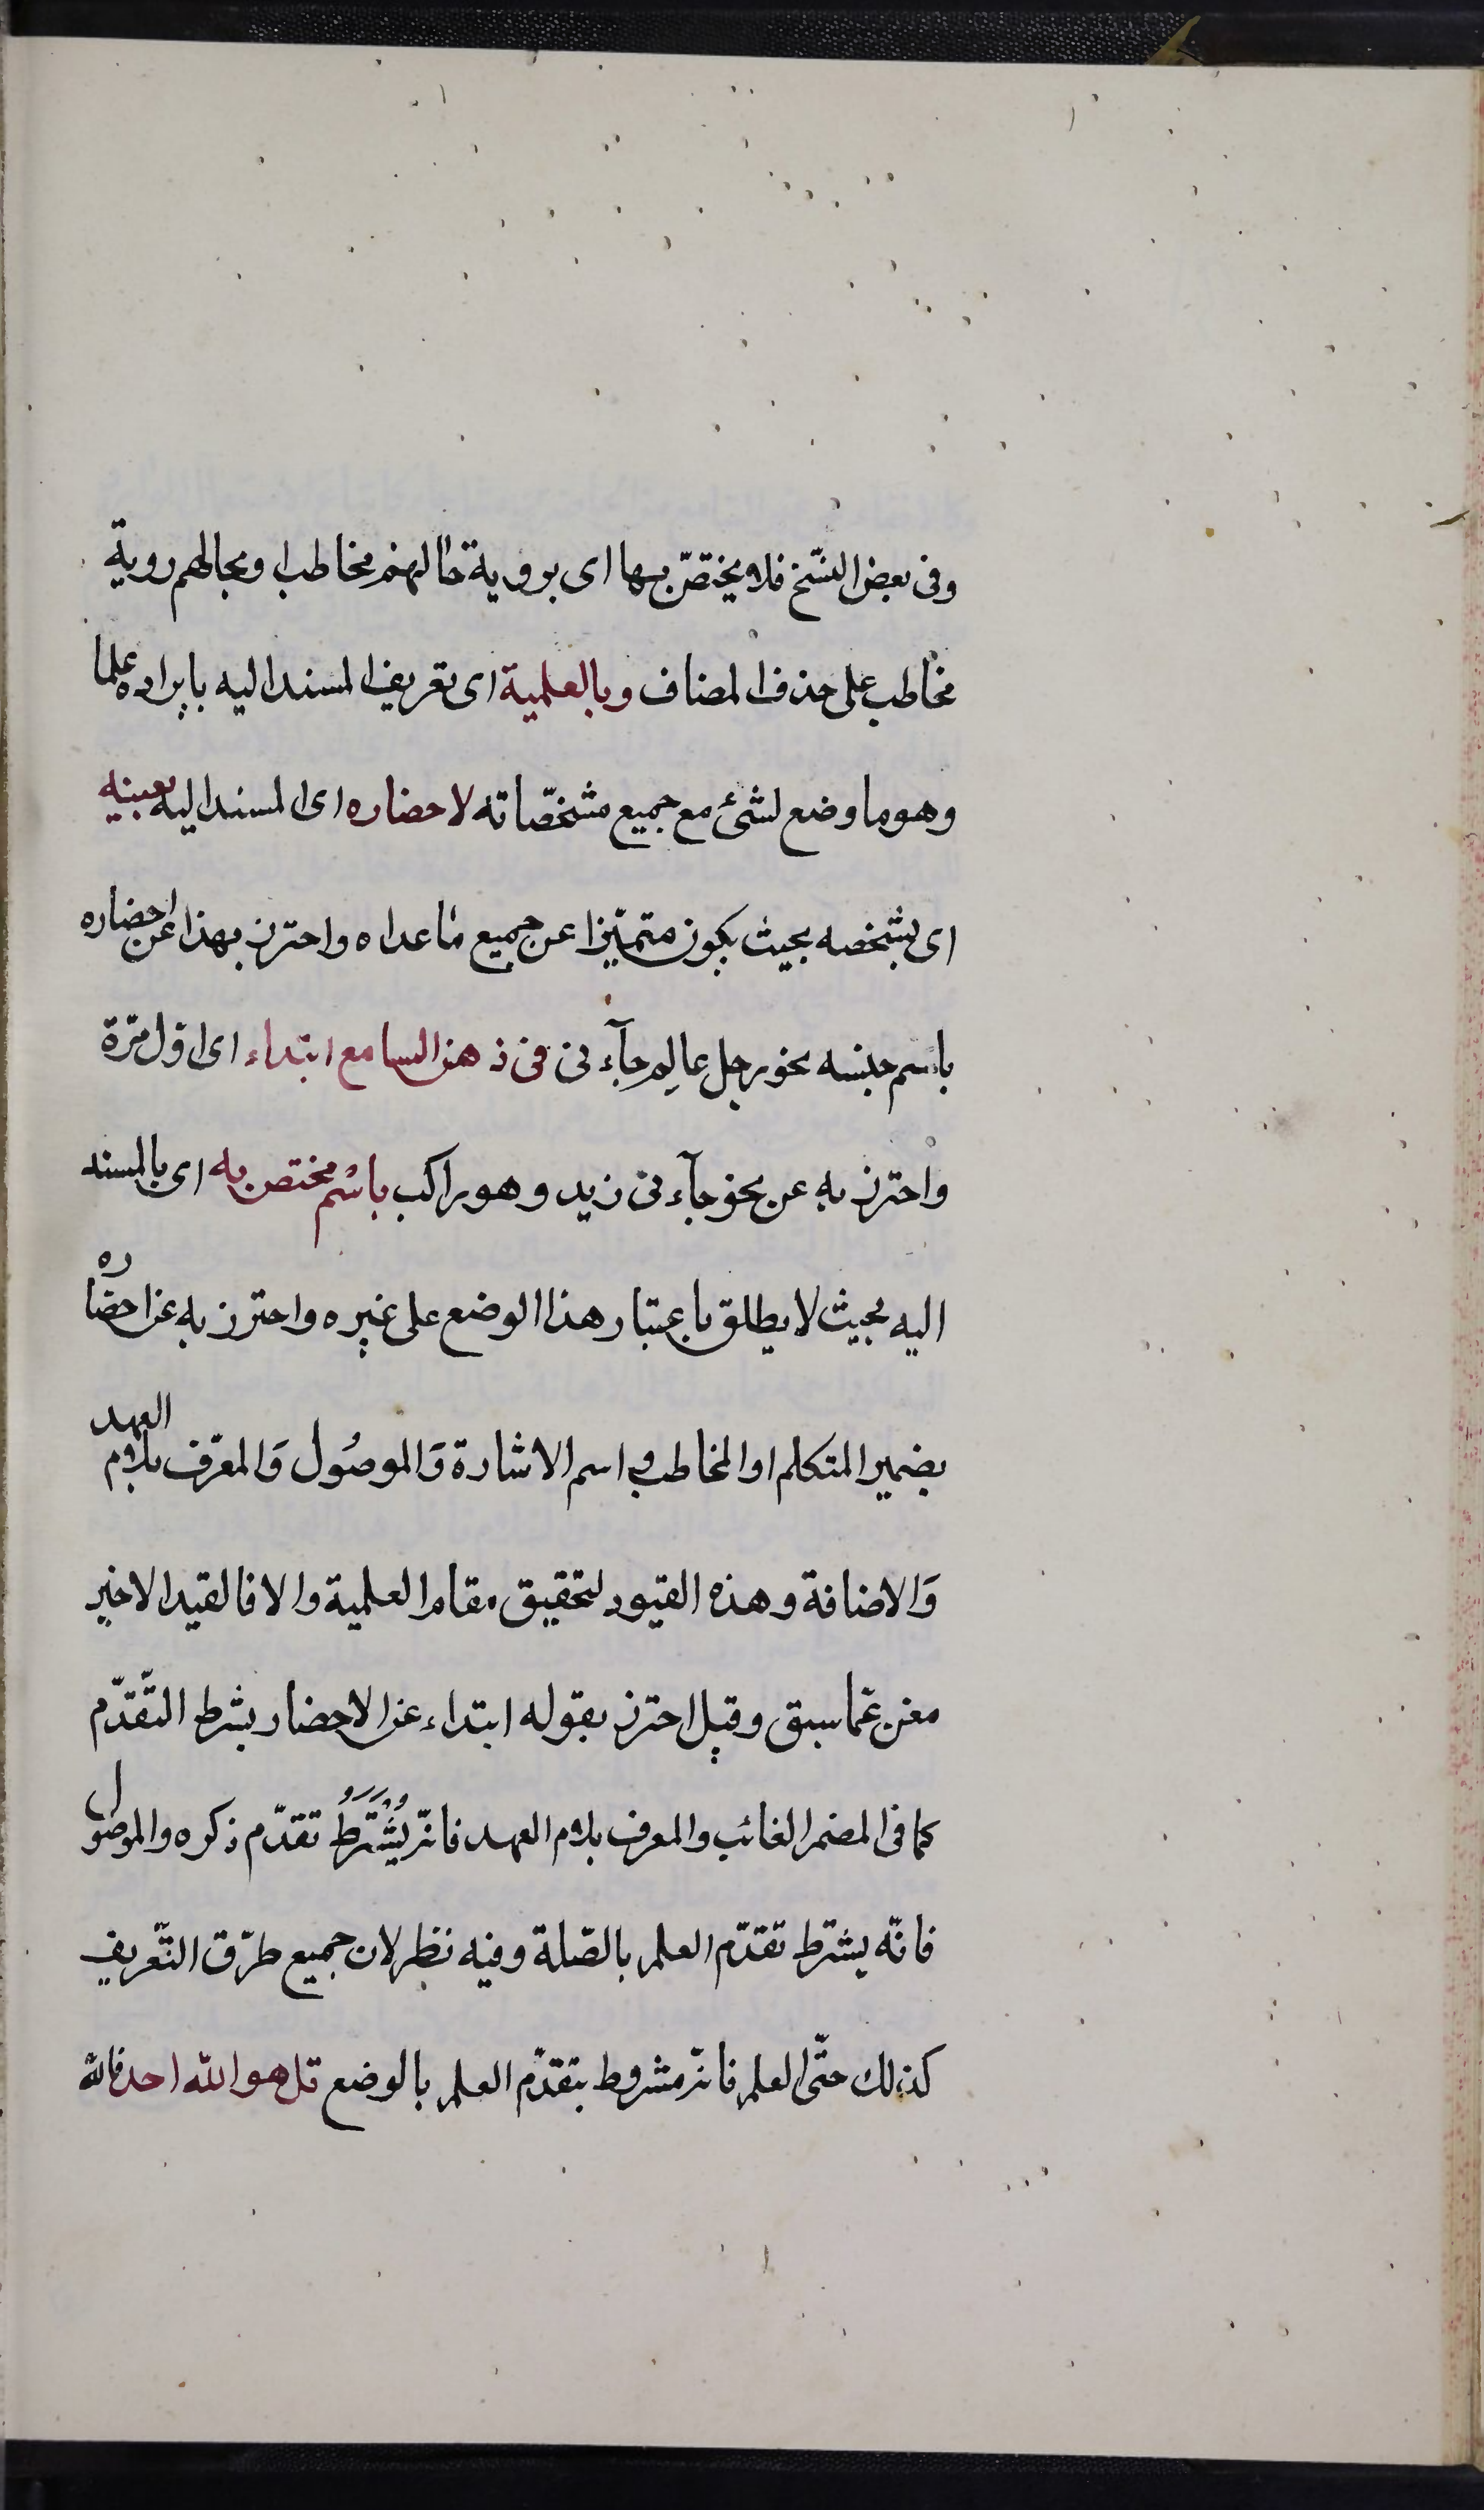 وفى بعض النسّخ فلا يختصّ بها اى بروية حالهم مخاطب او بحالهم روية
مخاطب على حذف المضاف وبالعلمية اى تعريف المسند اليه بايراده علما
وهو ما وضع لشئ مع جميع مشخّصاته لاحضاره اى المسند اليه بعينه
اى بشخصه بحيث يكون متميّزا عن جميع ما عداه واحترز بهذا عن احضاره
باسم جنسه نحو رجل عالم جآءنى فى ذهن السامع ابتداء اى اول مرّة
واحترز به عن نحو جآءنى زيد وهو راكب باسْم مختص به اى بالمسند
اليه بحيث لا يطلق باعتبار هذا الوضع على غيره واحترز به عن احضاره
بضمير المتكلم او المخاطب واسم الاشارة وَالموصُول وَالمعرّف بلام العهد
وَالاضافة وهذه القيود لتحقيق مقام العلمية والا فالقيد الاخير
مغن عمّا سبق وقيل احترز بقوله ابتداء عن الاحضار بشرط التّقدّم
كما فى المضمر الغائب والمعرف بلام العهد فانّه يُشْتَرَطُ تقدّم ذكره والموصول
فانّه يشترط تقدّم العلم بالصّلة وفيه نظر لان جميع طرّق التّعريف
كذلك حتّى العلم فانّه مشروط بتقدّم العلم بالوضع قل هو الله احد فالله